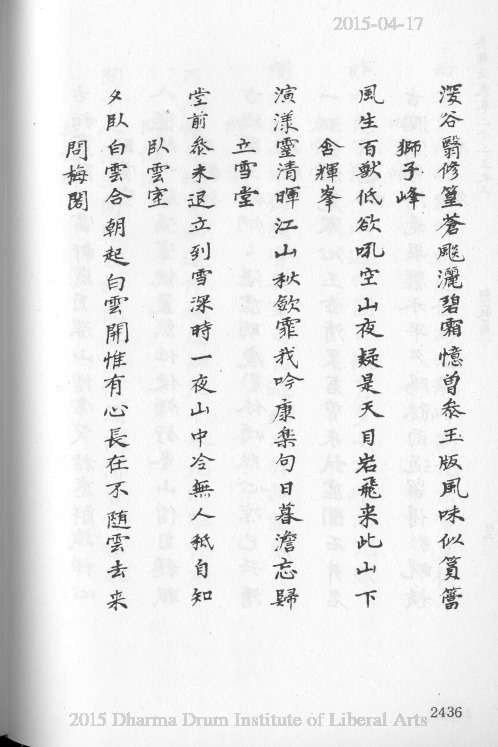 2015-04-17
深谷翳修篁蒼颷灑碧霜憶曾叅玉版風味似篔簹
獅子峰
風生百獸低欲吼空山夜疑是天目岩飛来此山下
含輝峯
演漾靈清暉江山秋歛霏我吟康樂句日暮澹忘歸
立雪堂
堂前叅未退立到雪深時一夜山中冷無人秪自知
臥雲室
夕臥白雲合朝起白雲開惟有心長在不随雲去来
問梅閣
2436
2015 Dharma Drum Institute of Liberal Arts